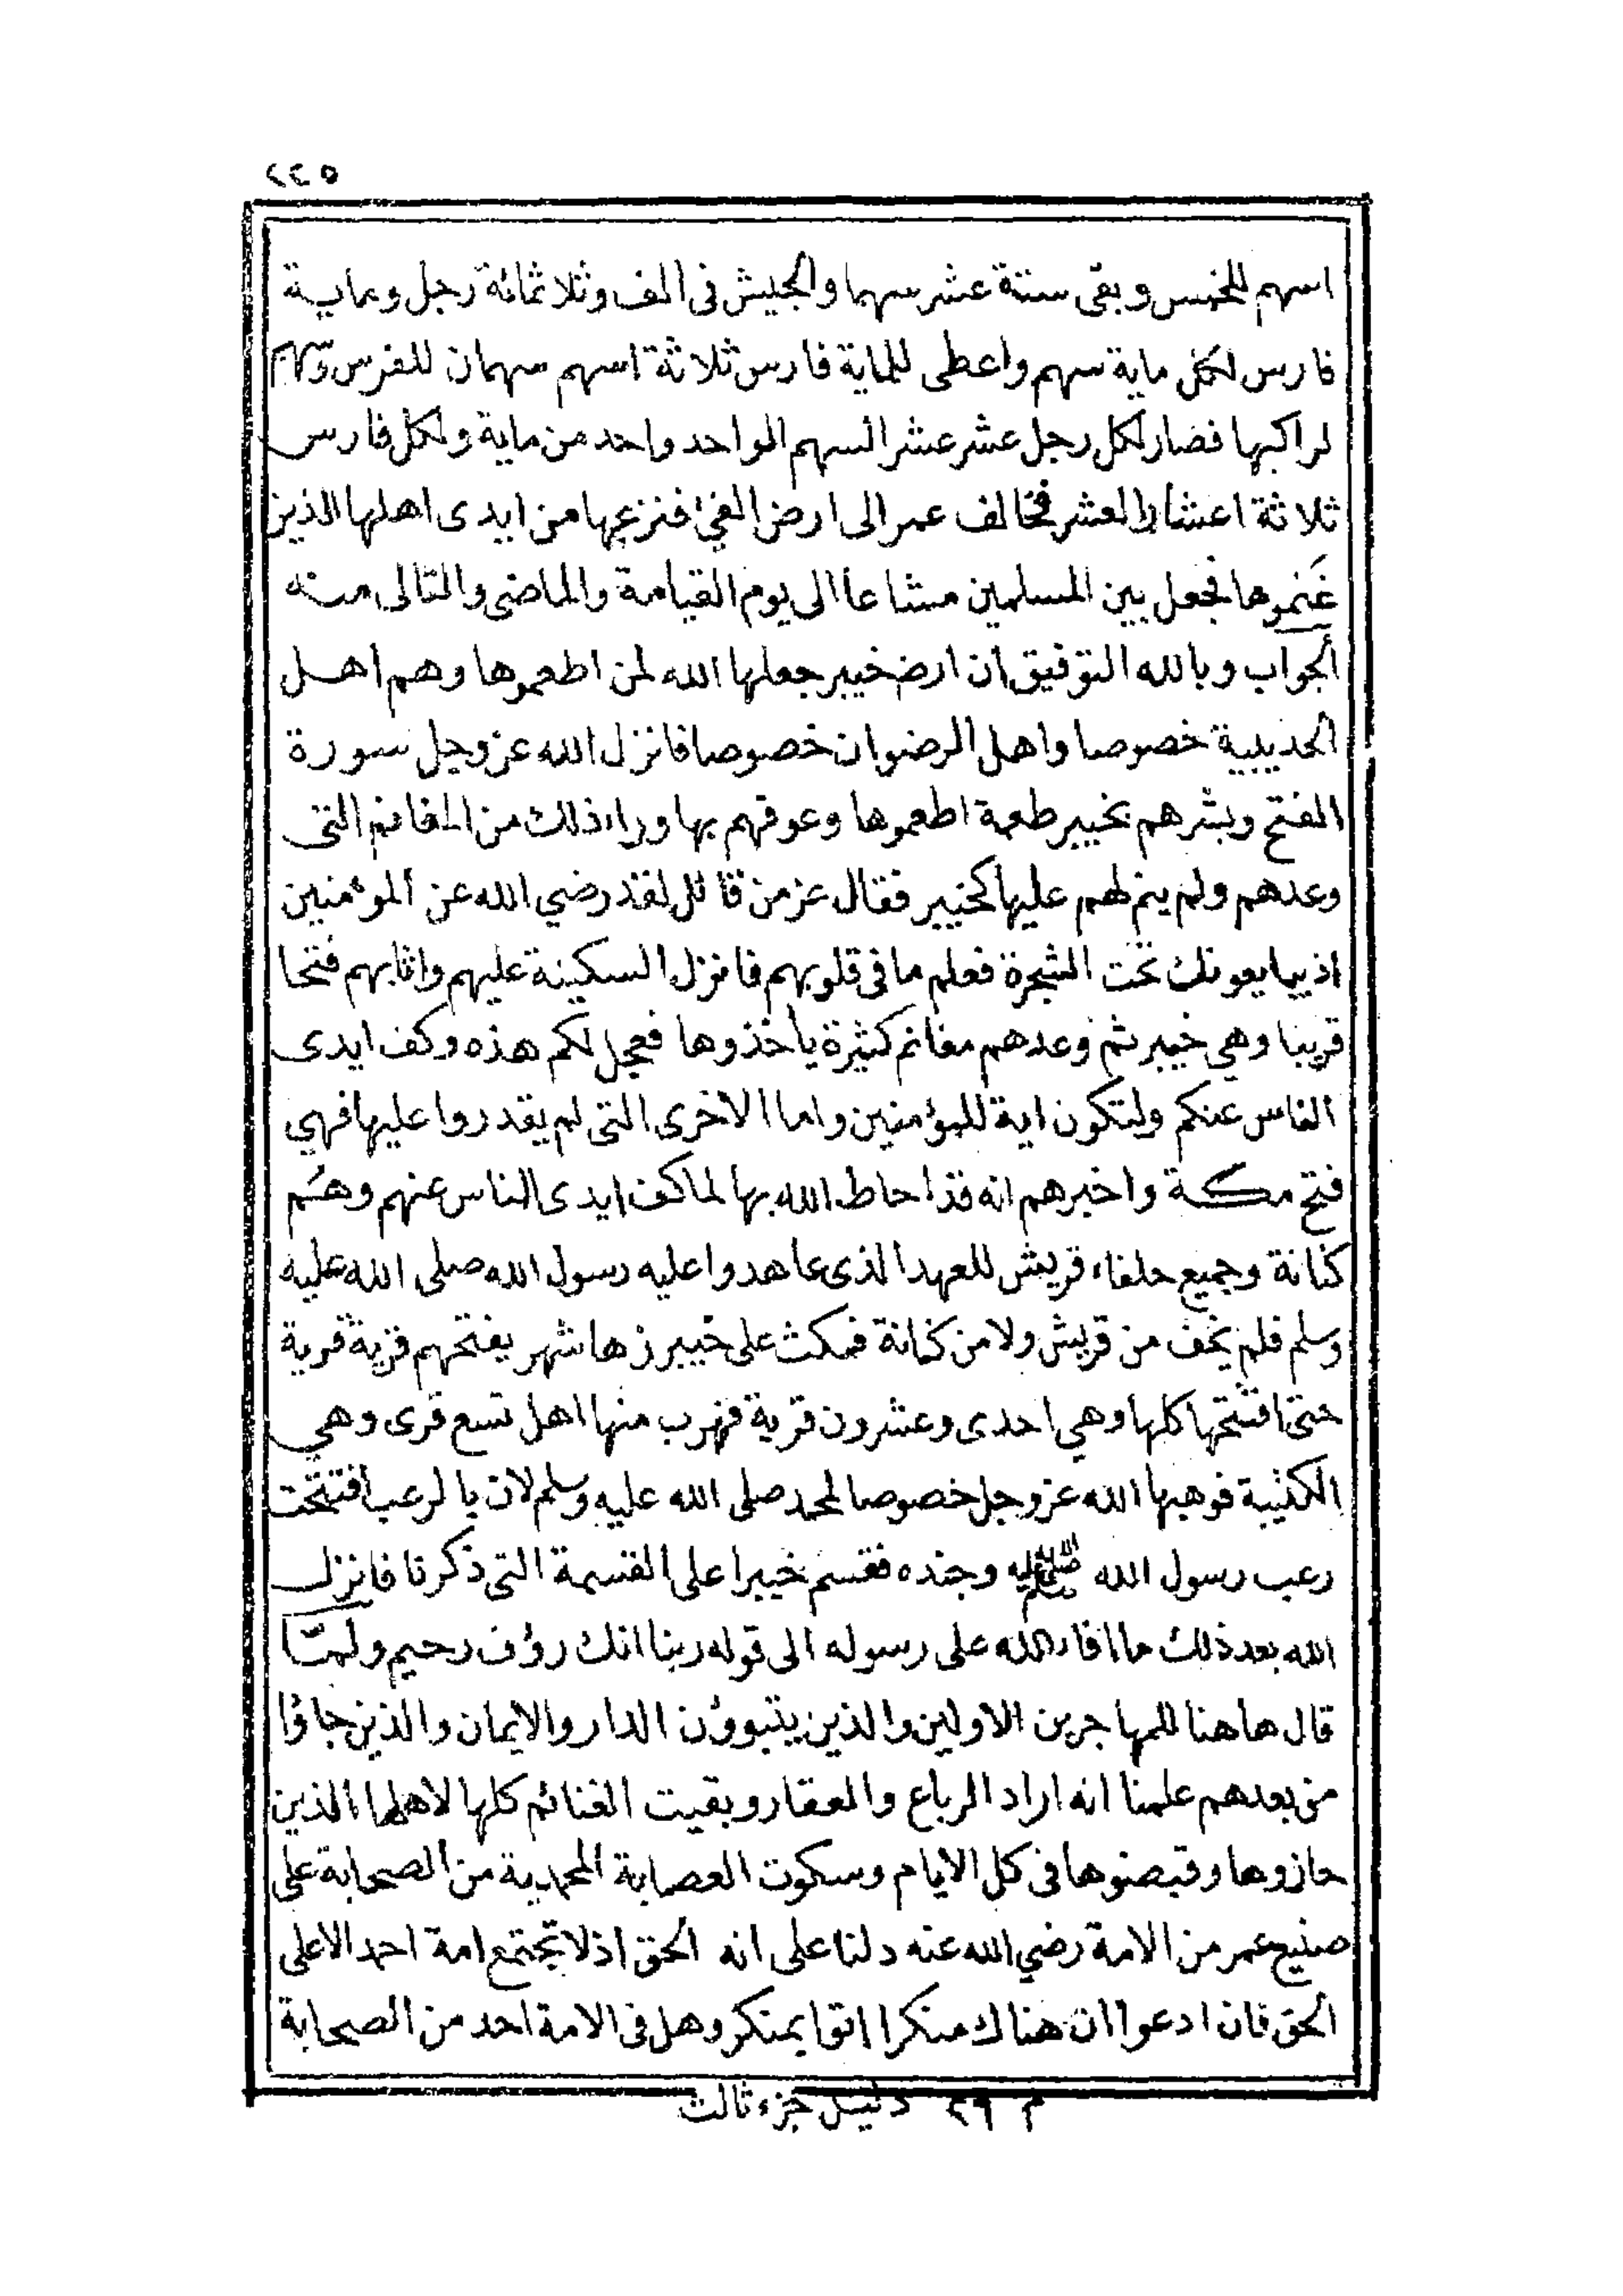 ٢٢٥
اسهم للخمس وبقى ستة عشر سهما والجيش فى الف وثلاثمائة رجل وماية
فارس لكل ماية سهم واعطى للماية فارس ثلاثة اسهم سهمان للفرس وسهم
لراكبها فصار لكل رجل عشر عشر السهم الواحد واحد من ماية ولكل فارس
ثلاثة اعشار العشر فخالف عمر الى ارض الفئ فنزعها من ايدى اهلها الذين
غَنموها فجعل بين المسلمين مشاعا الى يوم القيامة والماضى والتالى منه
الجواب وبالله التوفيق ان ارض خيبر جعلها الله لمن اطعموها وهم اهل
الحديبية خصوصا واهل الرضوان خصوصا فانزل الله عز وجل سورة
الفتح وبشرهم بخيبر طعمة اطعموها وعوقهم بها وراء ذلك من المغانم التى
وعدهم ولم ينم لهم عليها كخيبر فقال عز من قائل لقد رضي الله عن المؤمنين
اذ يبايعونك تحت الشجرة فعلم ما فى قلوبهم فانزل السكينة عليهم واثابهم فتحا
قريبا وهي خيبر ثم وعدهم مغانم كثيرة يأخذوها فعجل لكم هذه وكف ايدى
الناس عنكم ولتكون اية للمؤمنين واما الاخرى التى لم يقدروا عليها فهي
فتح مكة واخبرهم انه قد احاط الله بها لما كف ايدى الناس عنهم وهم
كنانة وجميع حلفاء قريش للعهد الذى عاهدوا عليه رسول الله صلى الله عليه
وسلم فلم يخف من قريش ولا من كنانة فمكث على خيبر زها شهر يفتحهم قرية قرية
حتى افتتحها كلها وهي احدى وعشرون قرية فهرب منها اهل تسع قرى وهي
الكثيبة فوهبها الله عز وجل خصوصا لمحمد صلى الله عليه وسلم لان بالرعب افتتحت
رعب رسول الله ﷺ وجنده فقسم خيبرا على القسمة التى ذكرنا فانزل
الله بعد ذلك ما افاء الله على رسوله الى قوله ربنا انك رؤف رحيم ولمّا
قال هاهنا للمهاجرين الاولين والذين يتبوؤن الدار والايمان والذين جاؤا
من بعدهم علمنا انه اراد الرباع والعقار وبقيت الغنائم كلها لاهلها الذين
حازوها وقبضوها فى كل الايام وسكوت العصابة المحمدية من الصحابة على
صنيع عمر من الامة رضي الله عنه دلنا على انه الحق اذ لا تجتمع امة احمد الا على
الحق فان ادعوا ان هناك منكرا اتوا بمنكر وهل فى الامة احد من الصحابة
م ٢٩ دليل جزء ثالث